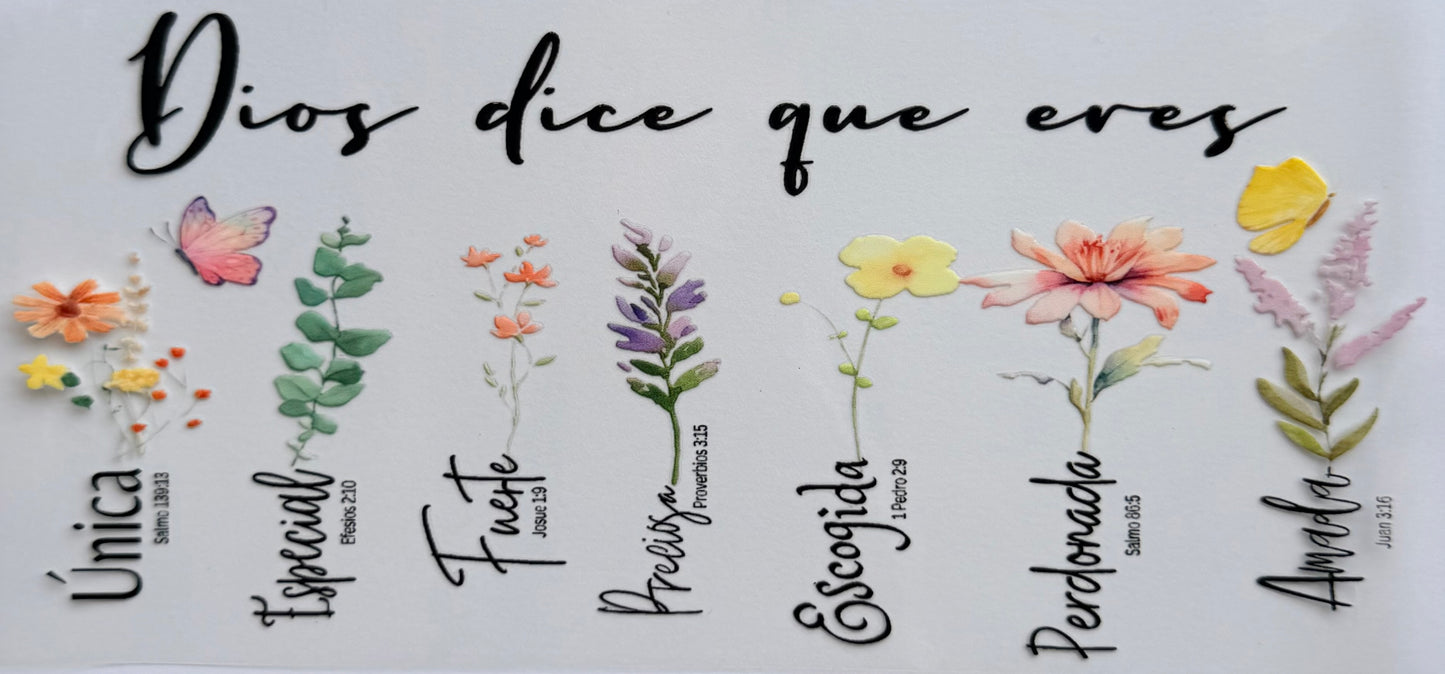 Dios dice que eres
Única
Salmo 139:13
Especial
Efesios 2:10
Fuerte
Josue 1:9
Preciosa
Proverbios 3:15
Escogida
1 Pedro 2:9
Perdonada
Salmo 86:5
Amada
Juan 3:16